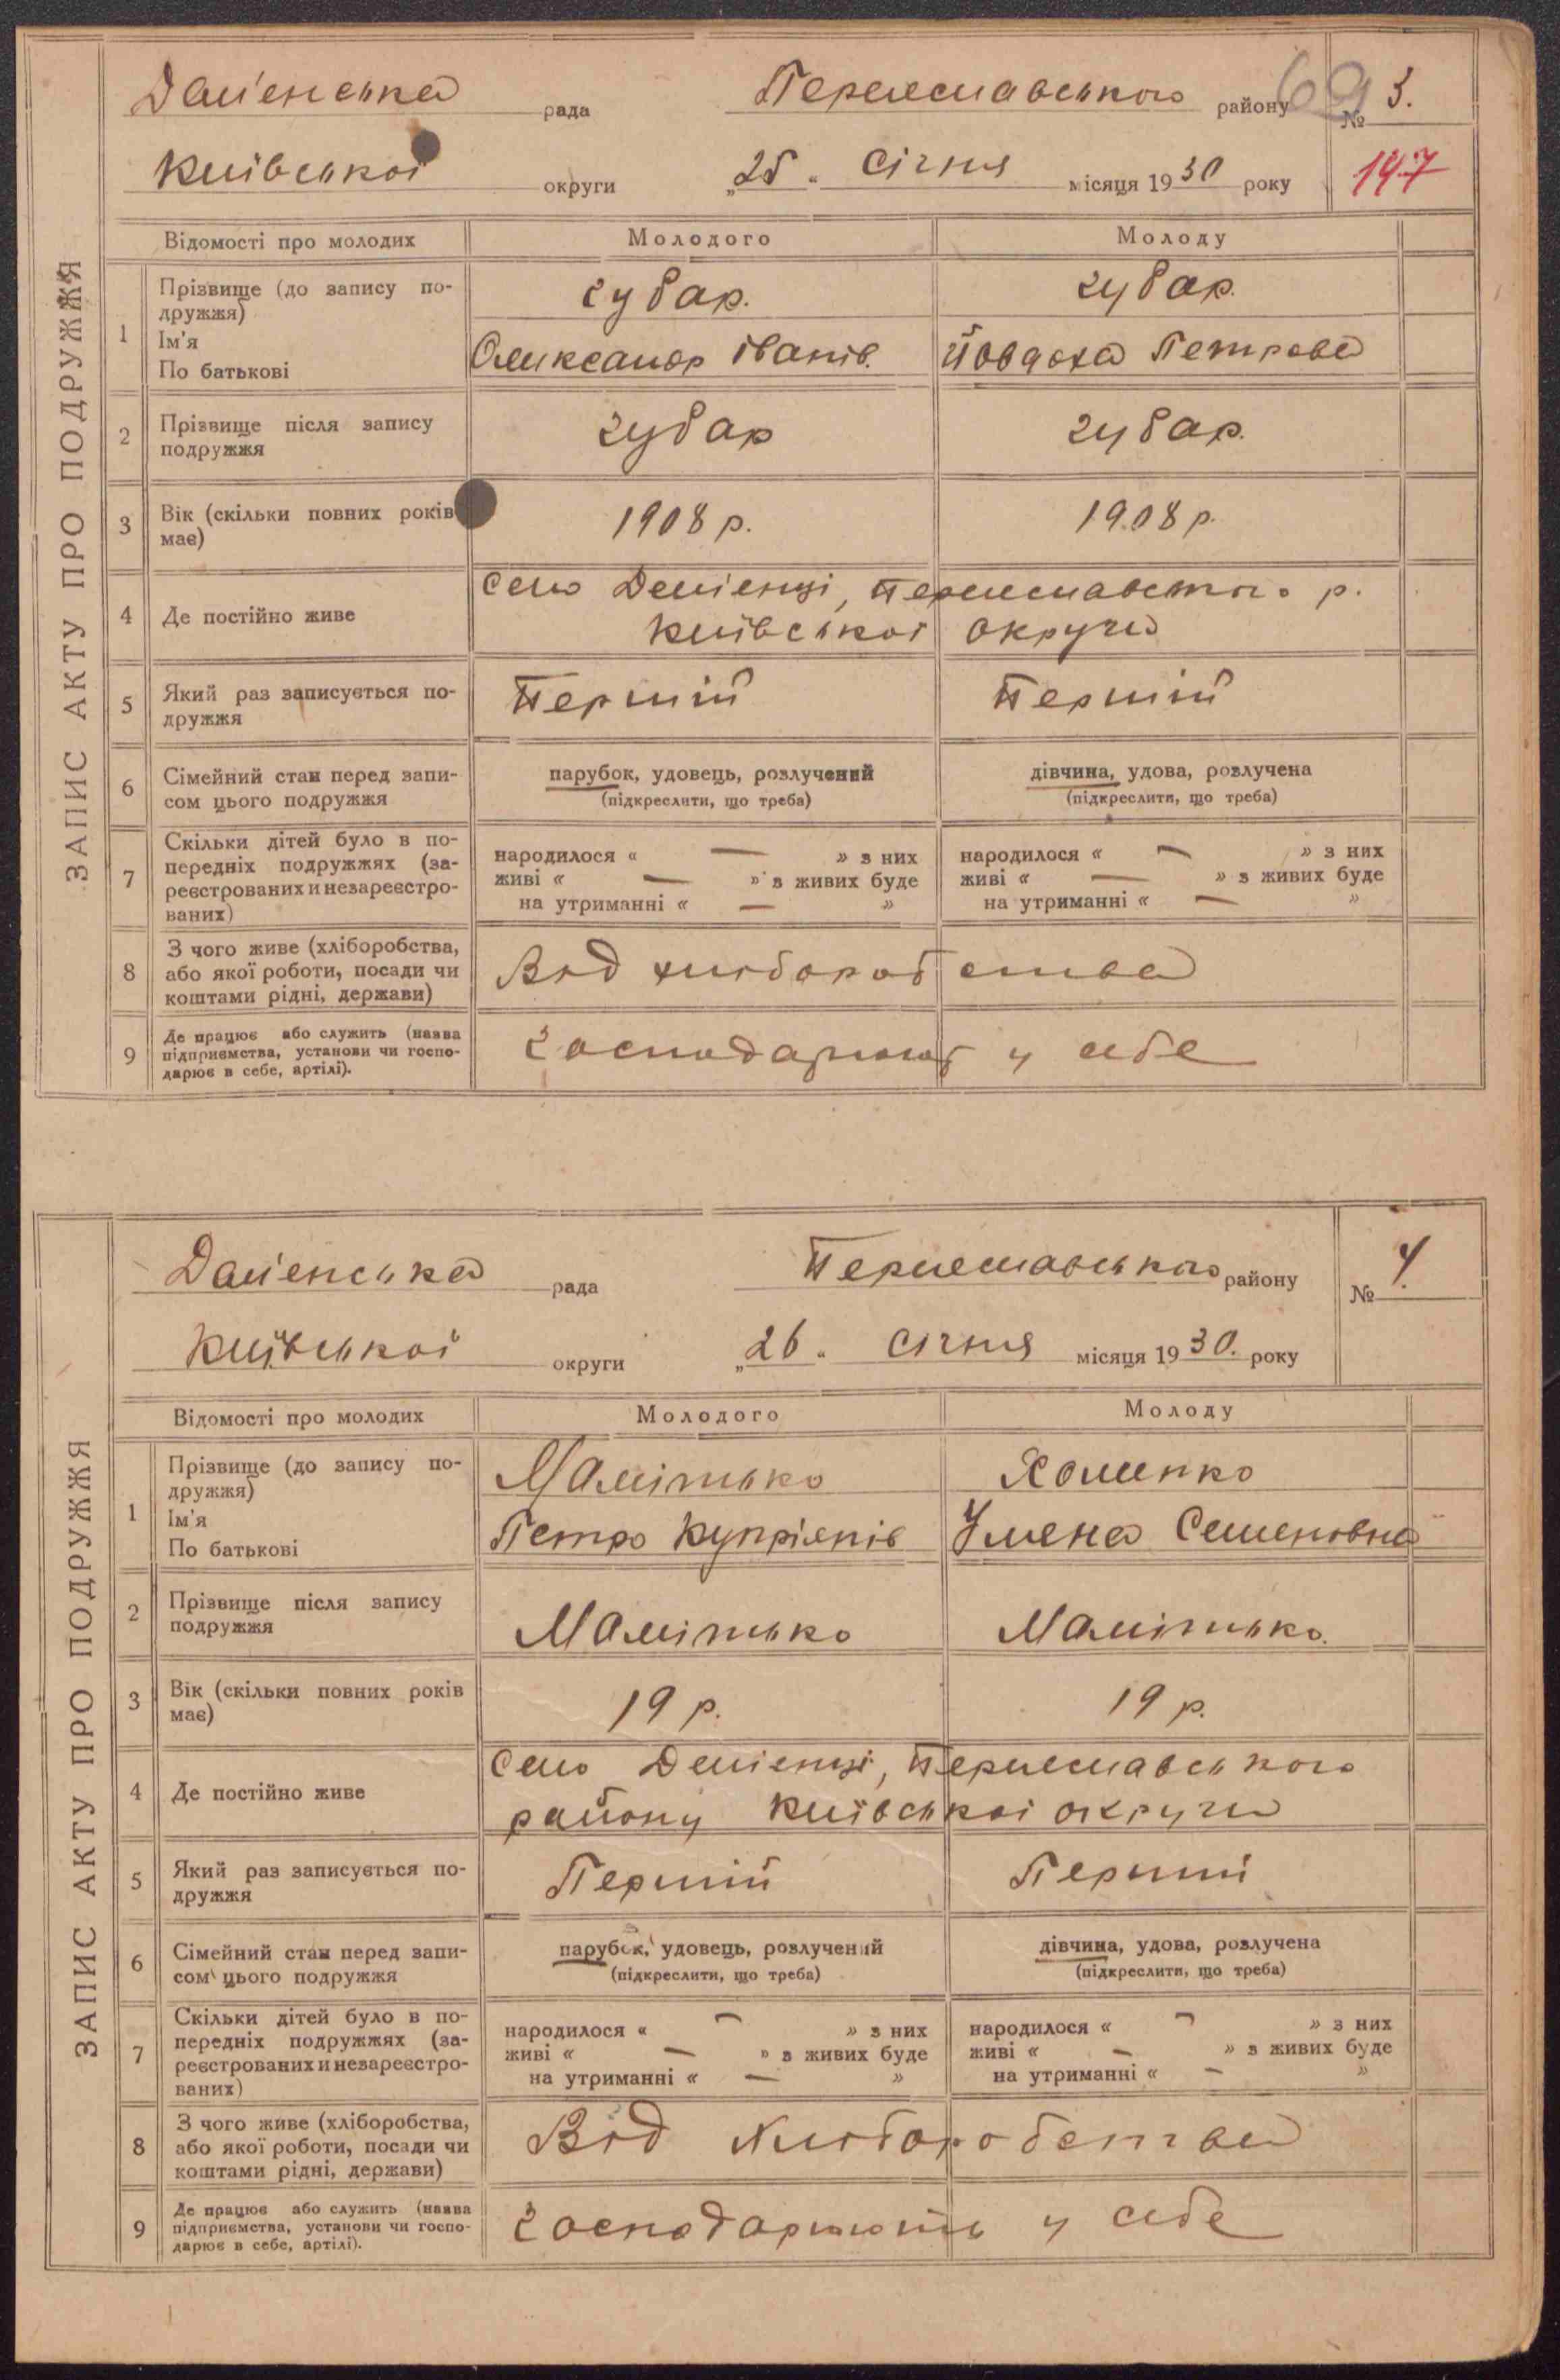 ЗАПИС АКТУ ПРО ПОДРУЖЖЯ
Дем'енська рада Переяславського району № 3.
69
Київської округи „25" Січня місяця 1930 року
147
Відомості про молодих Молодого Молоду
1 Прізвище (до запису подружжя) губар. губар.
Ім'я
По батькові Олександр іванів. Йовдоха Петрова
2 Прізвище після запису подружжя губар губар.
3 Вік (скільки повних років має) 1908 р. 1908 р.
4 Де постійно живе Село Демienці, Переяславського р.
Київської округи
5 Який раз записується подружжя Перший Перший
6 Сімейний стан перед записом цього подружжя парубок, удовець, розлучений дівчина, удова, розлучена
(підкреслити, що треба) (підкреслити, що треба)
7 Скільки дітей було в попередніх подружжях (зареєстрованих и незареєстрованих)
народилося « — » з них народилося « — » з них
живі « — » з живих буде живі « — » з живих буде
на утриманні « — » на утриманні « — »
8 З чого живе (хліборобства, або якої роботи, посади чи коштами рідні, держави) Від хліборобства
9 Де працює або служить (назва підприємства, установи чи господарює в себе, артілі). господарюют у себе
ЗАПИС АКТУ ПРО ПОДРУЖЖЯ
Дем'енська рада Переяславського району № 4.
Київської округи „26" Січня місяця 1930. року
Відомості про молодих Молодого Молоду
1 Прізвище (до запису подружжя) Хоменко
Ім'я
По батькові Петро Купріянів Семеновна
2 Прізвище після запису подружжя
3 Вік (скільки повних років має) 19 р. 19 р.
4 Де постійно живе Село Демієнці, Переяславського
району Київської округи
5 Який раз записується подружжя Перший Перший
6 Сімейний стан перед записом цього подружжя парубок, удовець, розлучений дівчина, удова, розлучена
(підкреслити, що треба) (підкреслити, що треба)
7 Скільки дітей було в попередніх подружжях (зареєстрованих и незареєстрованих)
народилося « — » з них народилося « — » з них
живі « — » з живих буде живі « — » з живих буде
на утриманні « — » на утриманні « — »
8 З чого живе (хліборобства, або якої роботи, посади чи коштами рідні, держави) Від Хліборобства
9 Де працює або служить (назва підприємства, установи чи господарює в себе, артілі). господарюють у себе